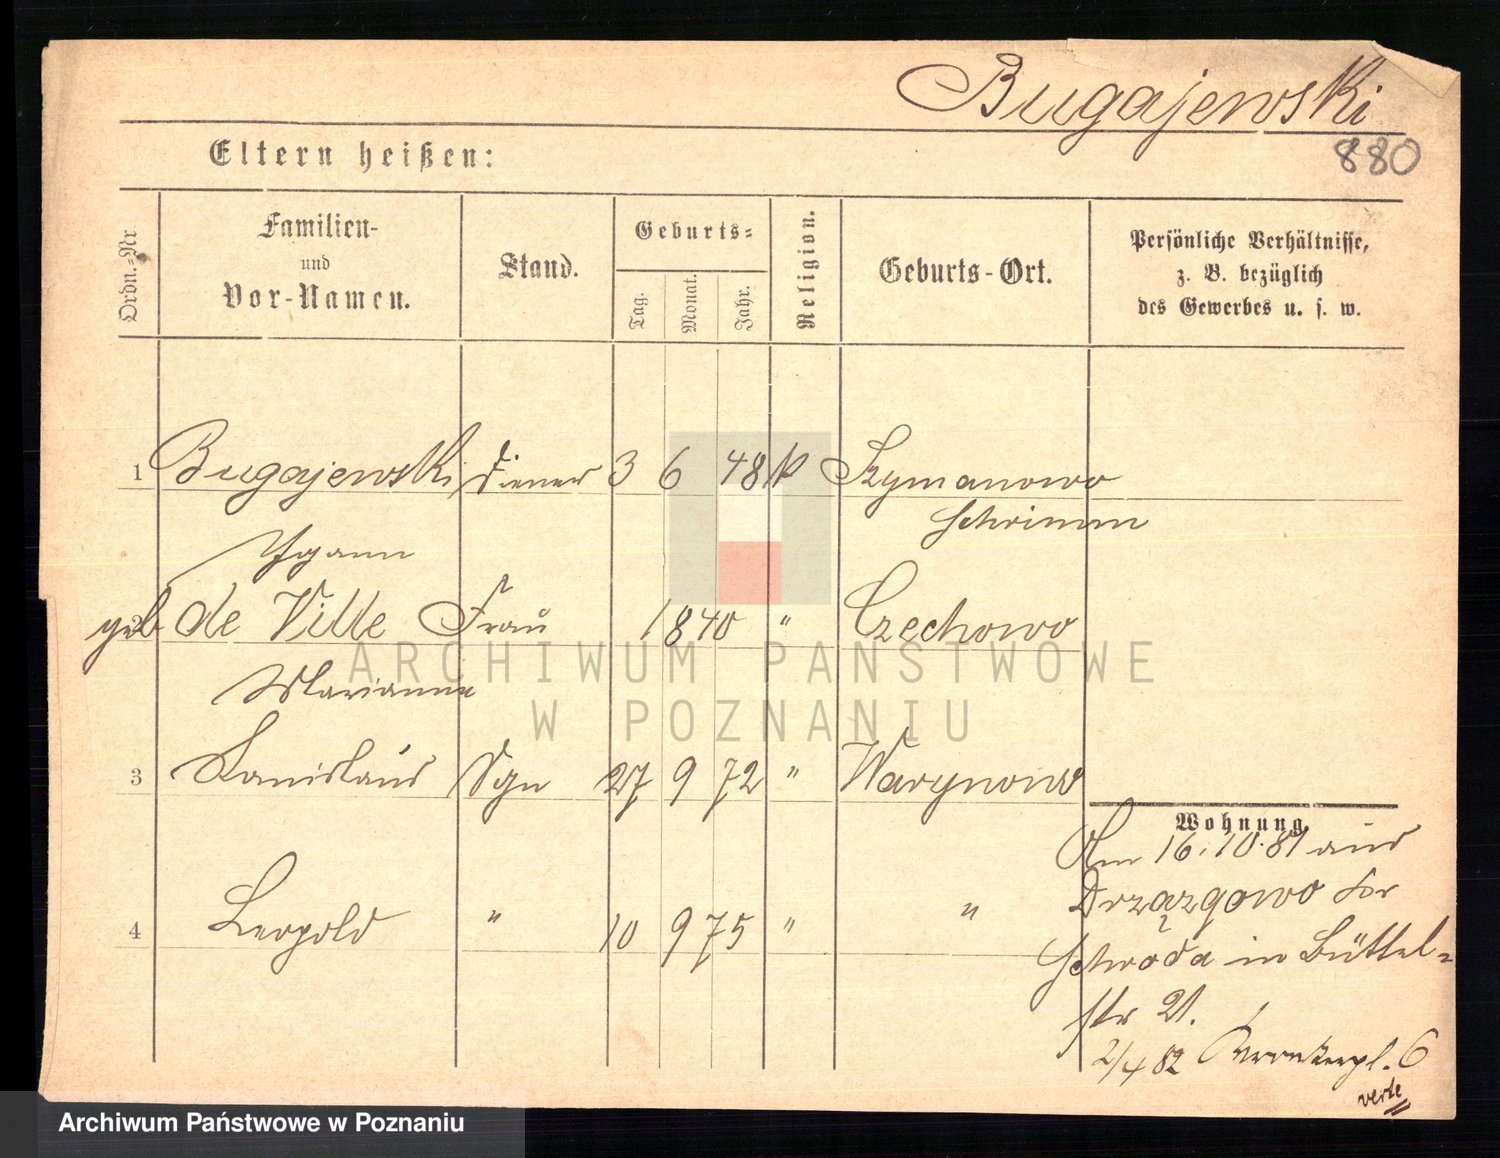 Bugajewski
880
Eltern heißen:
Ordn.-Nr
Familien-
und
Vor-Namen.
Stand.
Geburts-
Tag.
Monat.
Jahr.
Religion.
Geburts-Ort.
Persönliche Verhältnisse,
z. B. bezüglich
des Gewerbes u. s. w.
1 Bugajewski Diener 3 6 48 k Szymanowo
Schrimm
Ignann
2 geb de Ville Frau 1840 " Czechowo
Marianne
3 Stanislaus Sohn 27 9 72 "
4 Leopold " 10 9 75 " "
Wohnung
Am 16.10.81 aus
Drzązgowo Kr
Schroda in Büttel-
str 21.
2/4 82 6
verte
ARCHIWUM PAŃSTWOWE
W POZNANIU
Archiwum Państwowe w Poznaniu